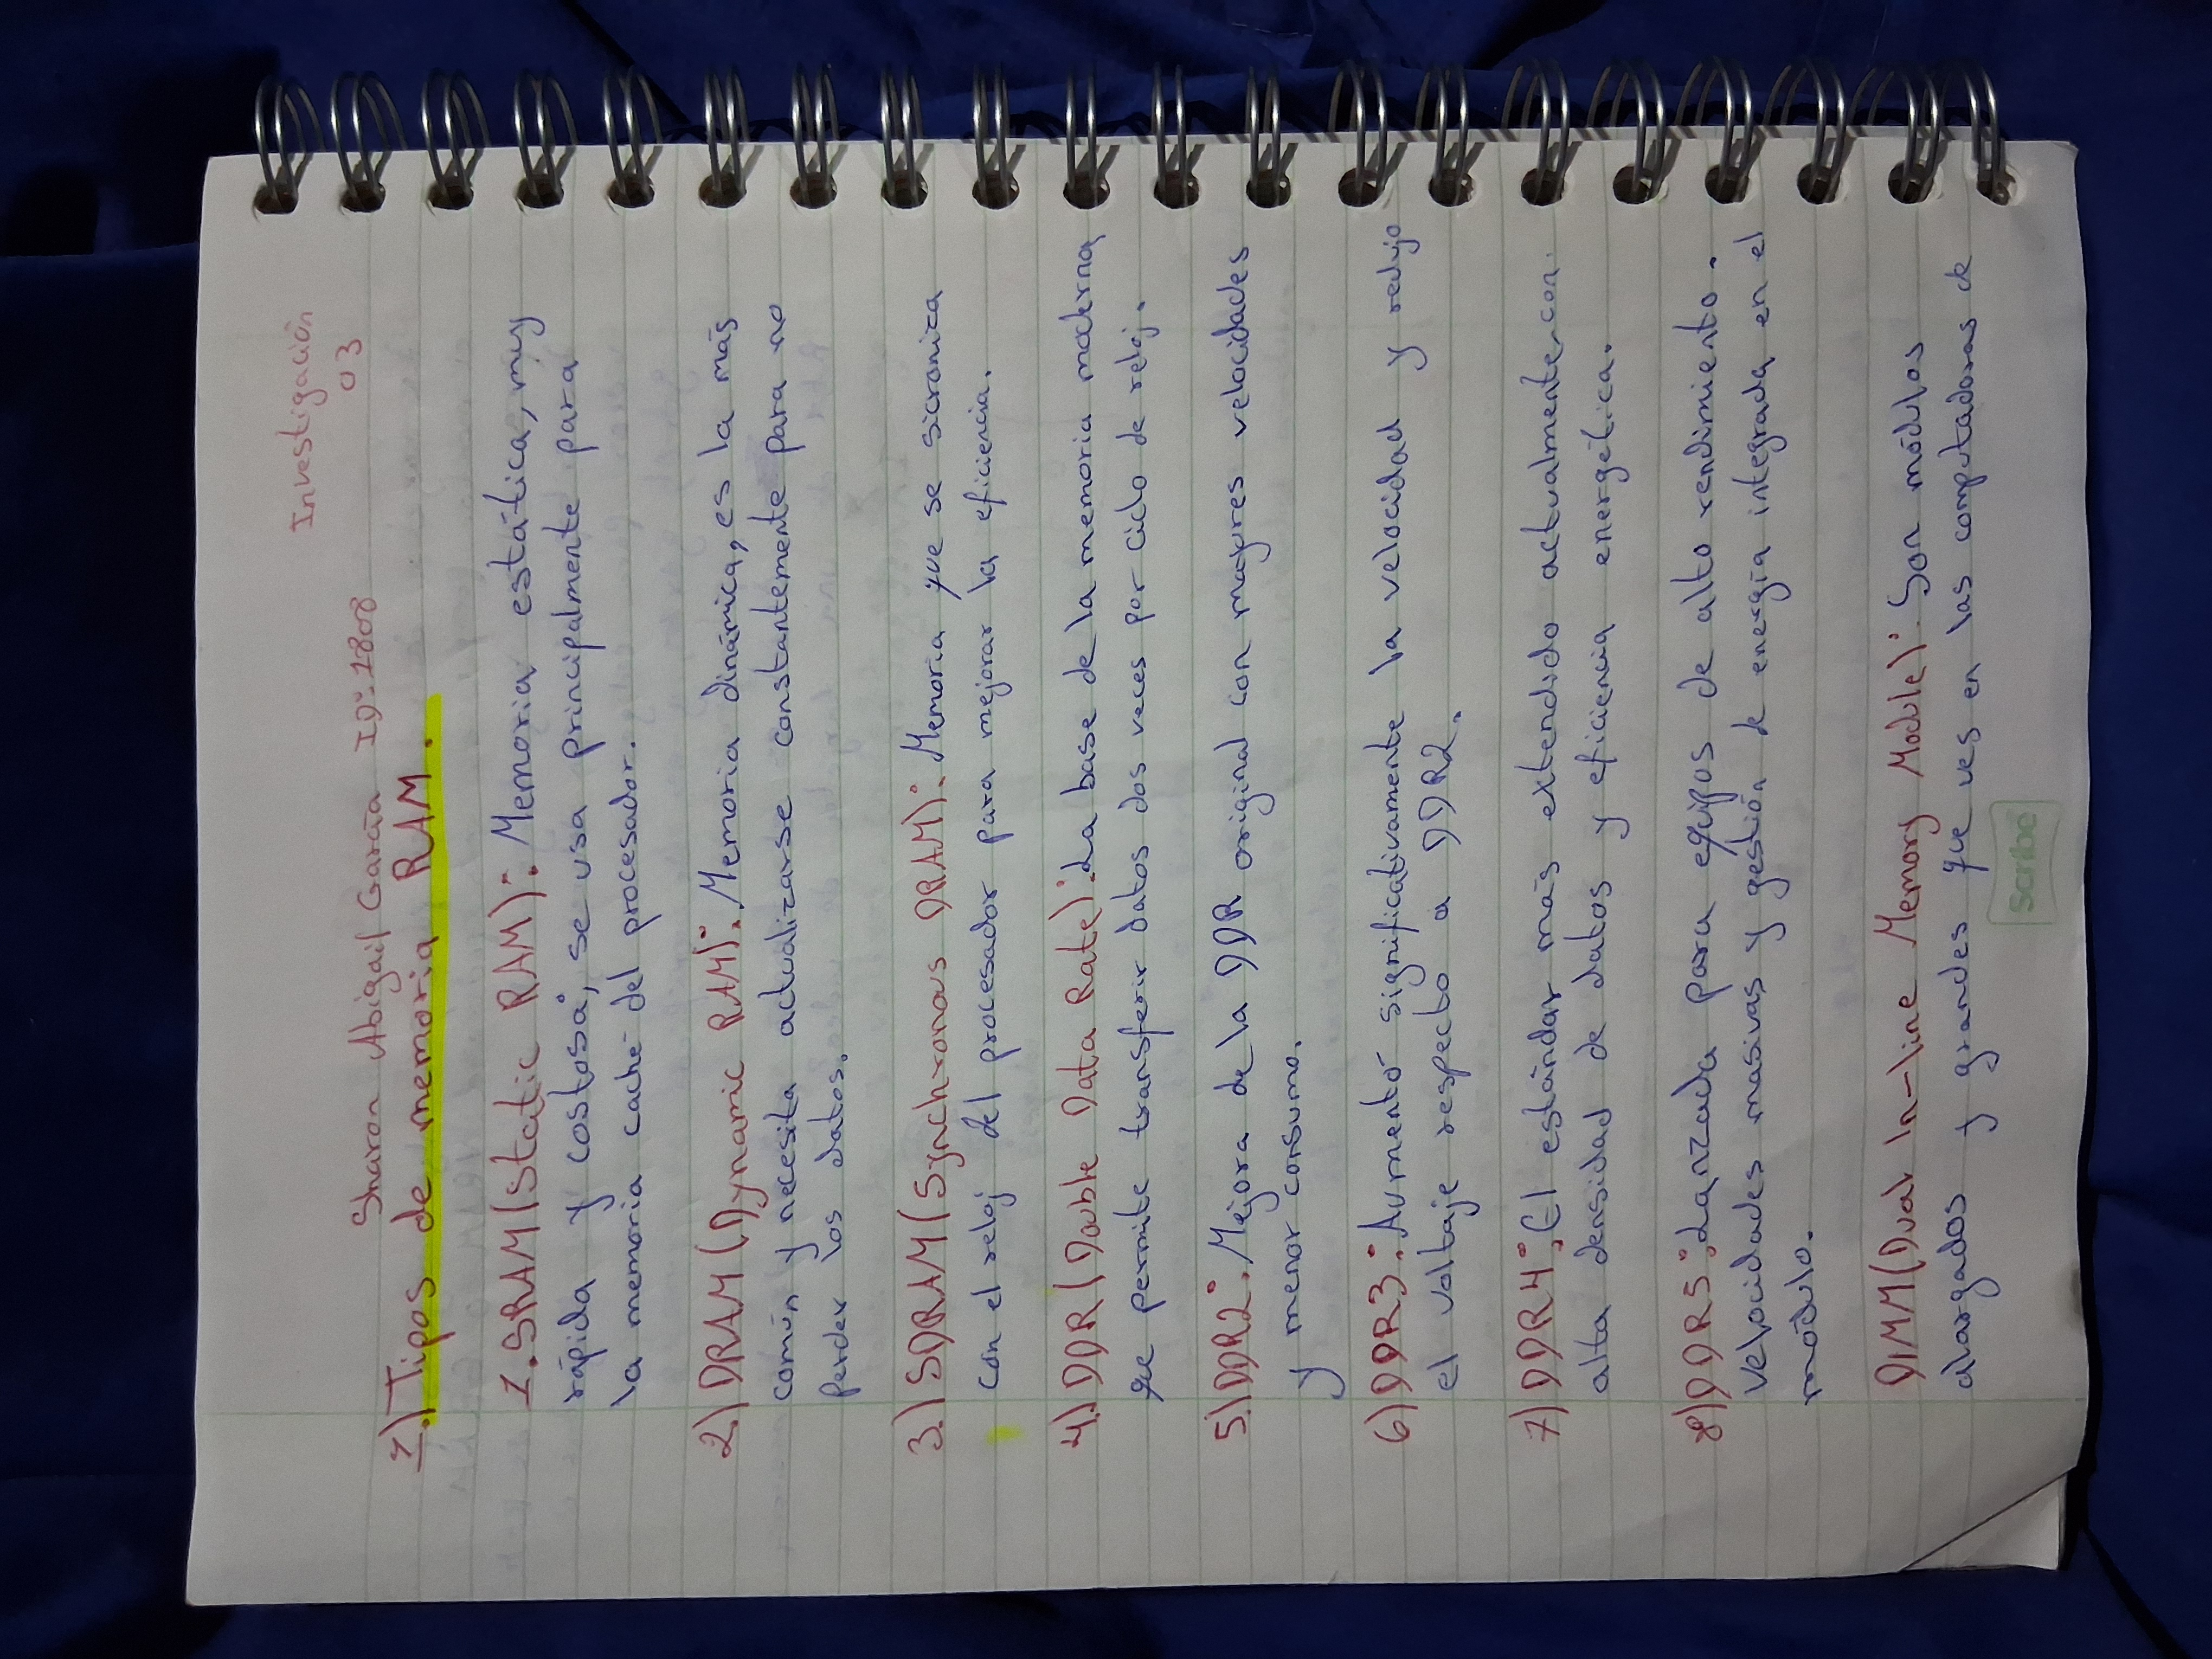 Investigación
03
Sharon Abigail García ID: 1808
1.)Tipos de memoria RAM.
1. SRAM (Static RAM): Memoria estática, muy
rápida y costosa, se usa principalmente para
la memoria caché del procesador.
2.) DRAM (Dynamic RAM): Memoria dinámica, es la más
común y necesita actualizarse constantemente para no
perder los datos.
3.) SDRAM (Synchronous DRAM): Memoria que se sicroniza
con el reloj del procesador para mejorar la eficiencia.
4.) DDR (Double Data Rate): La base de la memoria moderna
que permite transferir datos dos veces por ciclo de reloj.
5.) DDR2: Mejora de la DDR original con mayores velocidades
y menor consumo.
6.) DDR3: Aumentó significativamente la velocidad y redujo
el voltaje respecto a DDR2.
7) DDR4: El estándar más extendido actualmente, con
alta densidad de datos y eficiencia energética.
8) DDR5: Lanzada para equipos de alto rendimiento.
Velocidades masivas y gestión de energía integrada en el
módulo.
DIMM (Dual In-line Memory Module): Son módulos
alargados y grandes que ves en las computadoras de
Scribe